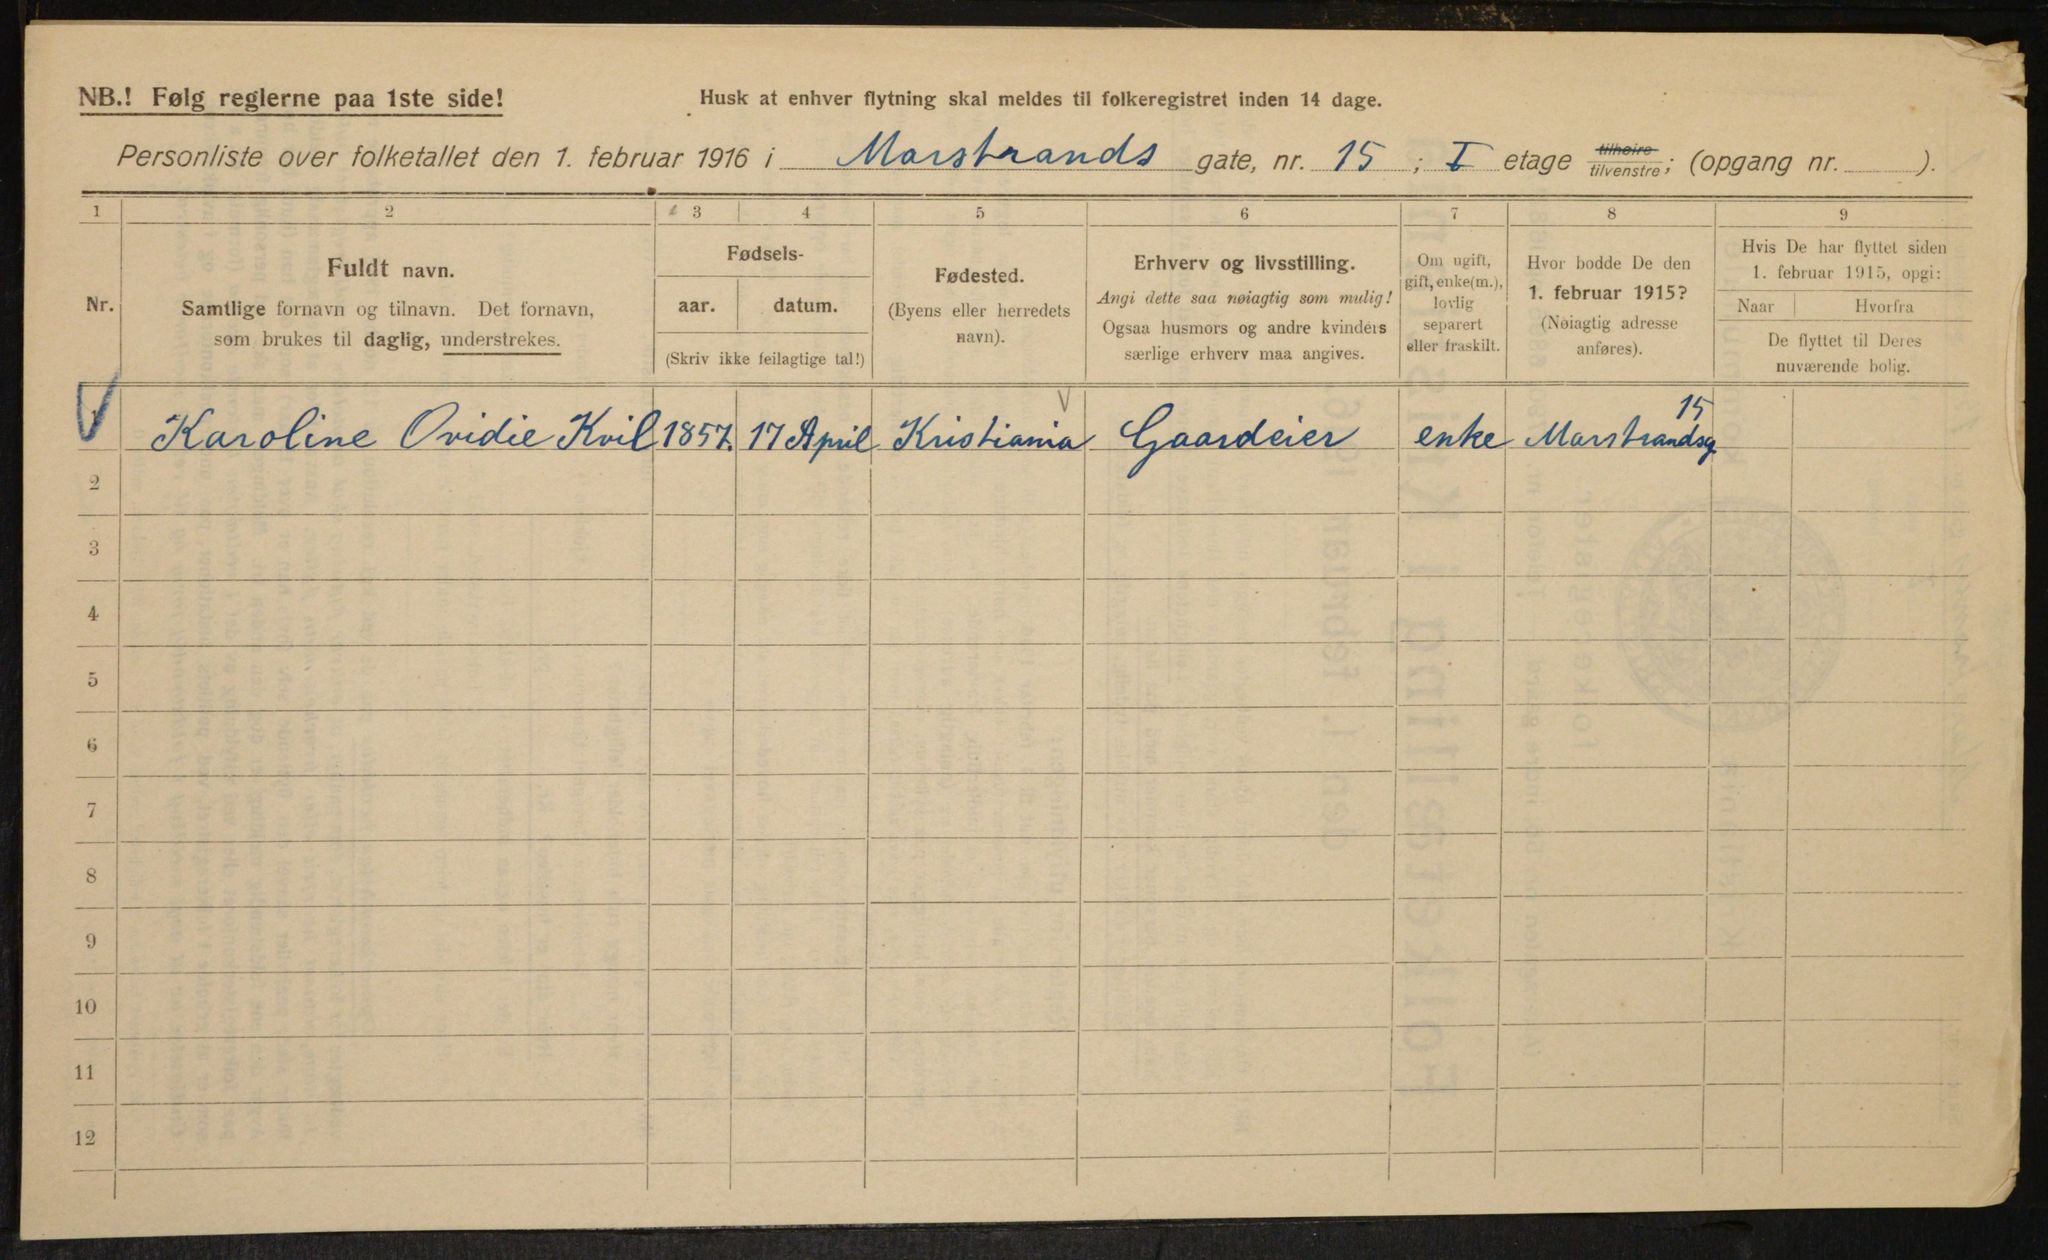 NB.! Følg reglerne paa 1ste side!
Husk at enhver flytning skal meldes til folkeregistret inden 14 dage.
Personliste over folketallet den 1. februar 1916 i Marstrands gate, nr. 15 ; I etage tilhøire/tilvenstre; (opgang nr. ).
1 2 3 4 5 6 7 8 9
Nr.
Fuldt navn.
Samtlige fornavn og tilnavn. Det fornavn,
som brukes til daglig, understrekes.
Fødsels-
aar. datum.
(Skriv ikke feilagtige tal!)
Fødested.
(Byens eller herredets
navn).
Erhverv og livsstilling.
Angi dette saa nøiagtig som mulig!
Ogsaa husmors og andre kvinders
særlige erhverv maa angives.
Om ugift,
gift, enke(m.),
lovlig
separert
eller fraskilt.
Hvor bodde De den
1. februar 1915?
(Nøiagtig adresse
anføres).
Hvis De har flyttet siden
1. februar 1915, opgi:
Naar Hvorfra
De flyttet til Deres
nuværende bolig.
1 Karoline Ovidie Kvil 1857. 17 April Kristiania Gaardeier enke Marstrandsg. 15
2
3
4
5
6
7
8
9
10
11
12